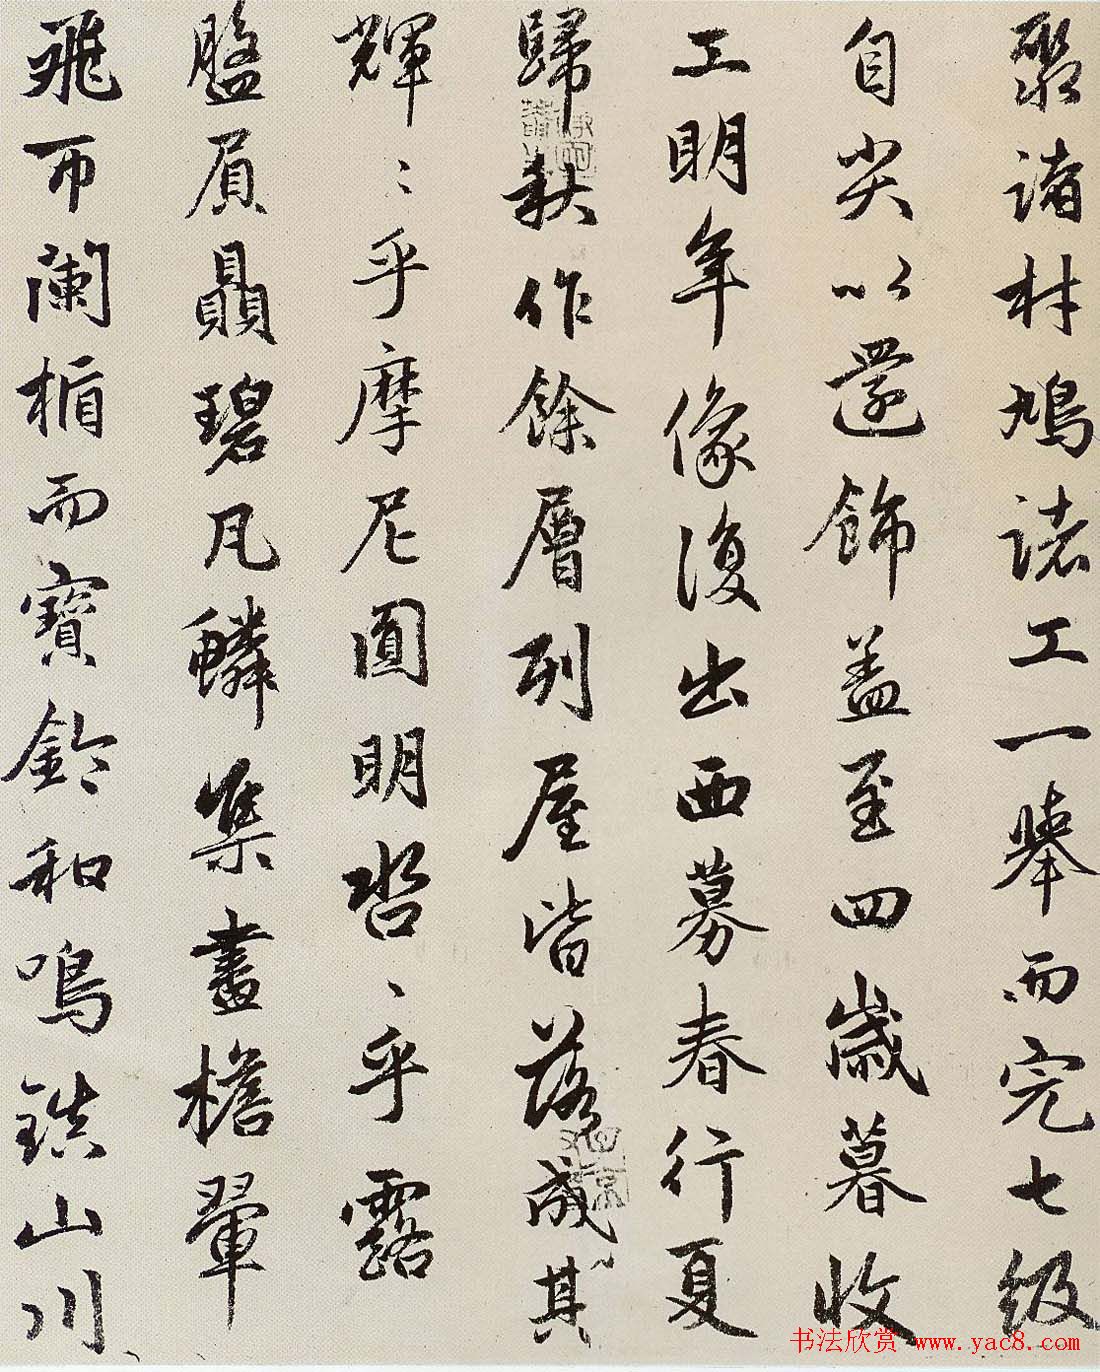 聚諸材鳩諸工一舉而完七級
自尖以還飾蓋至四歲暮收
工明年像復出西募春行夏
歸秋作餘層列屋皆落成其
輝〻乎摩尼圓明沓〻乎露
盤屓贔碧瓦鱗集畫檐翬
飛帀闌楯而寶鈴和鳴鎮山川
书法欣赏 www.yac8.com